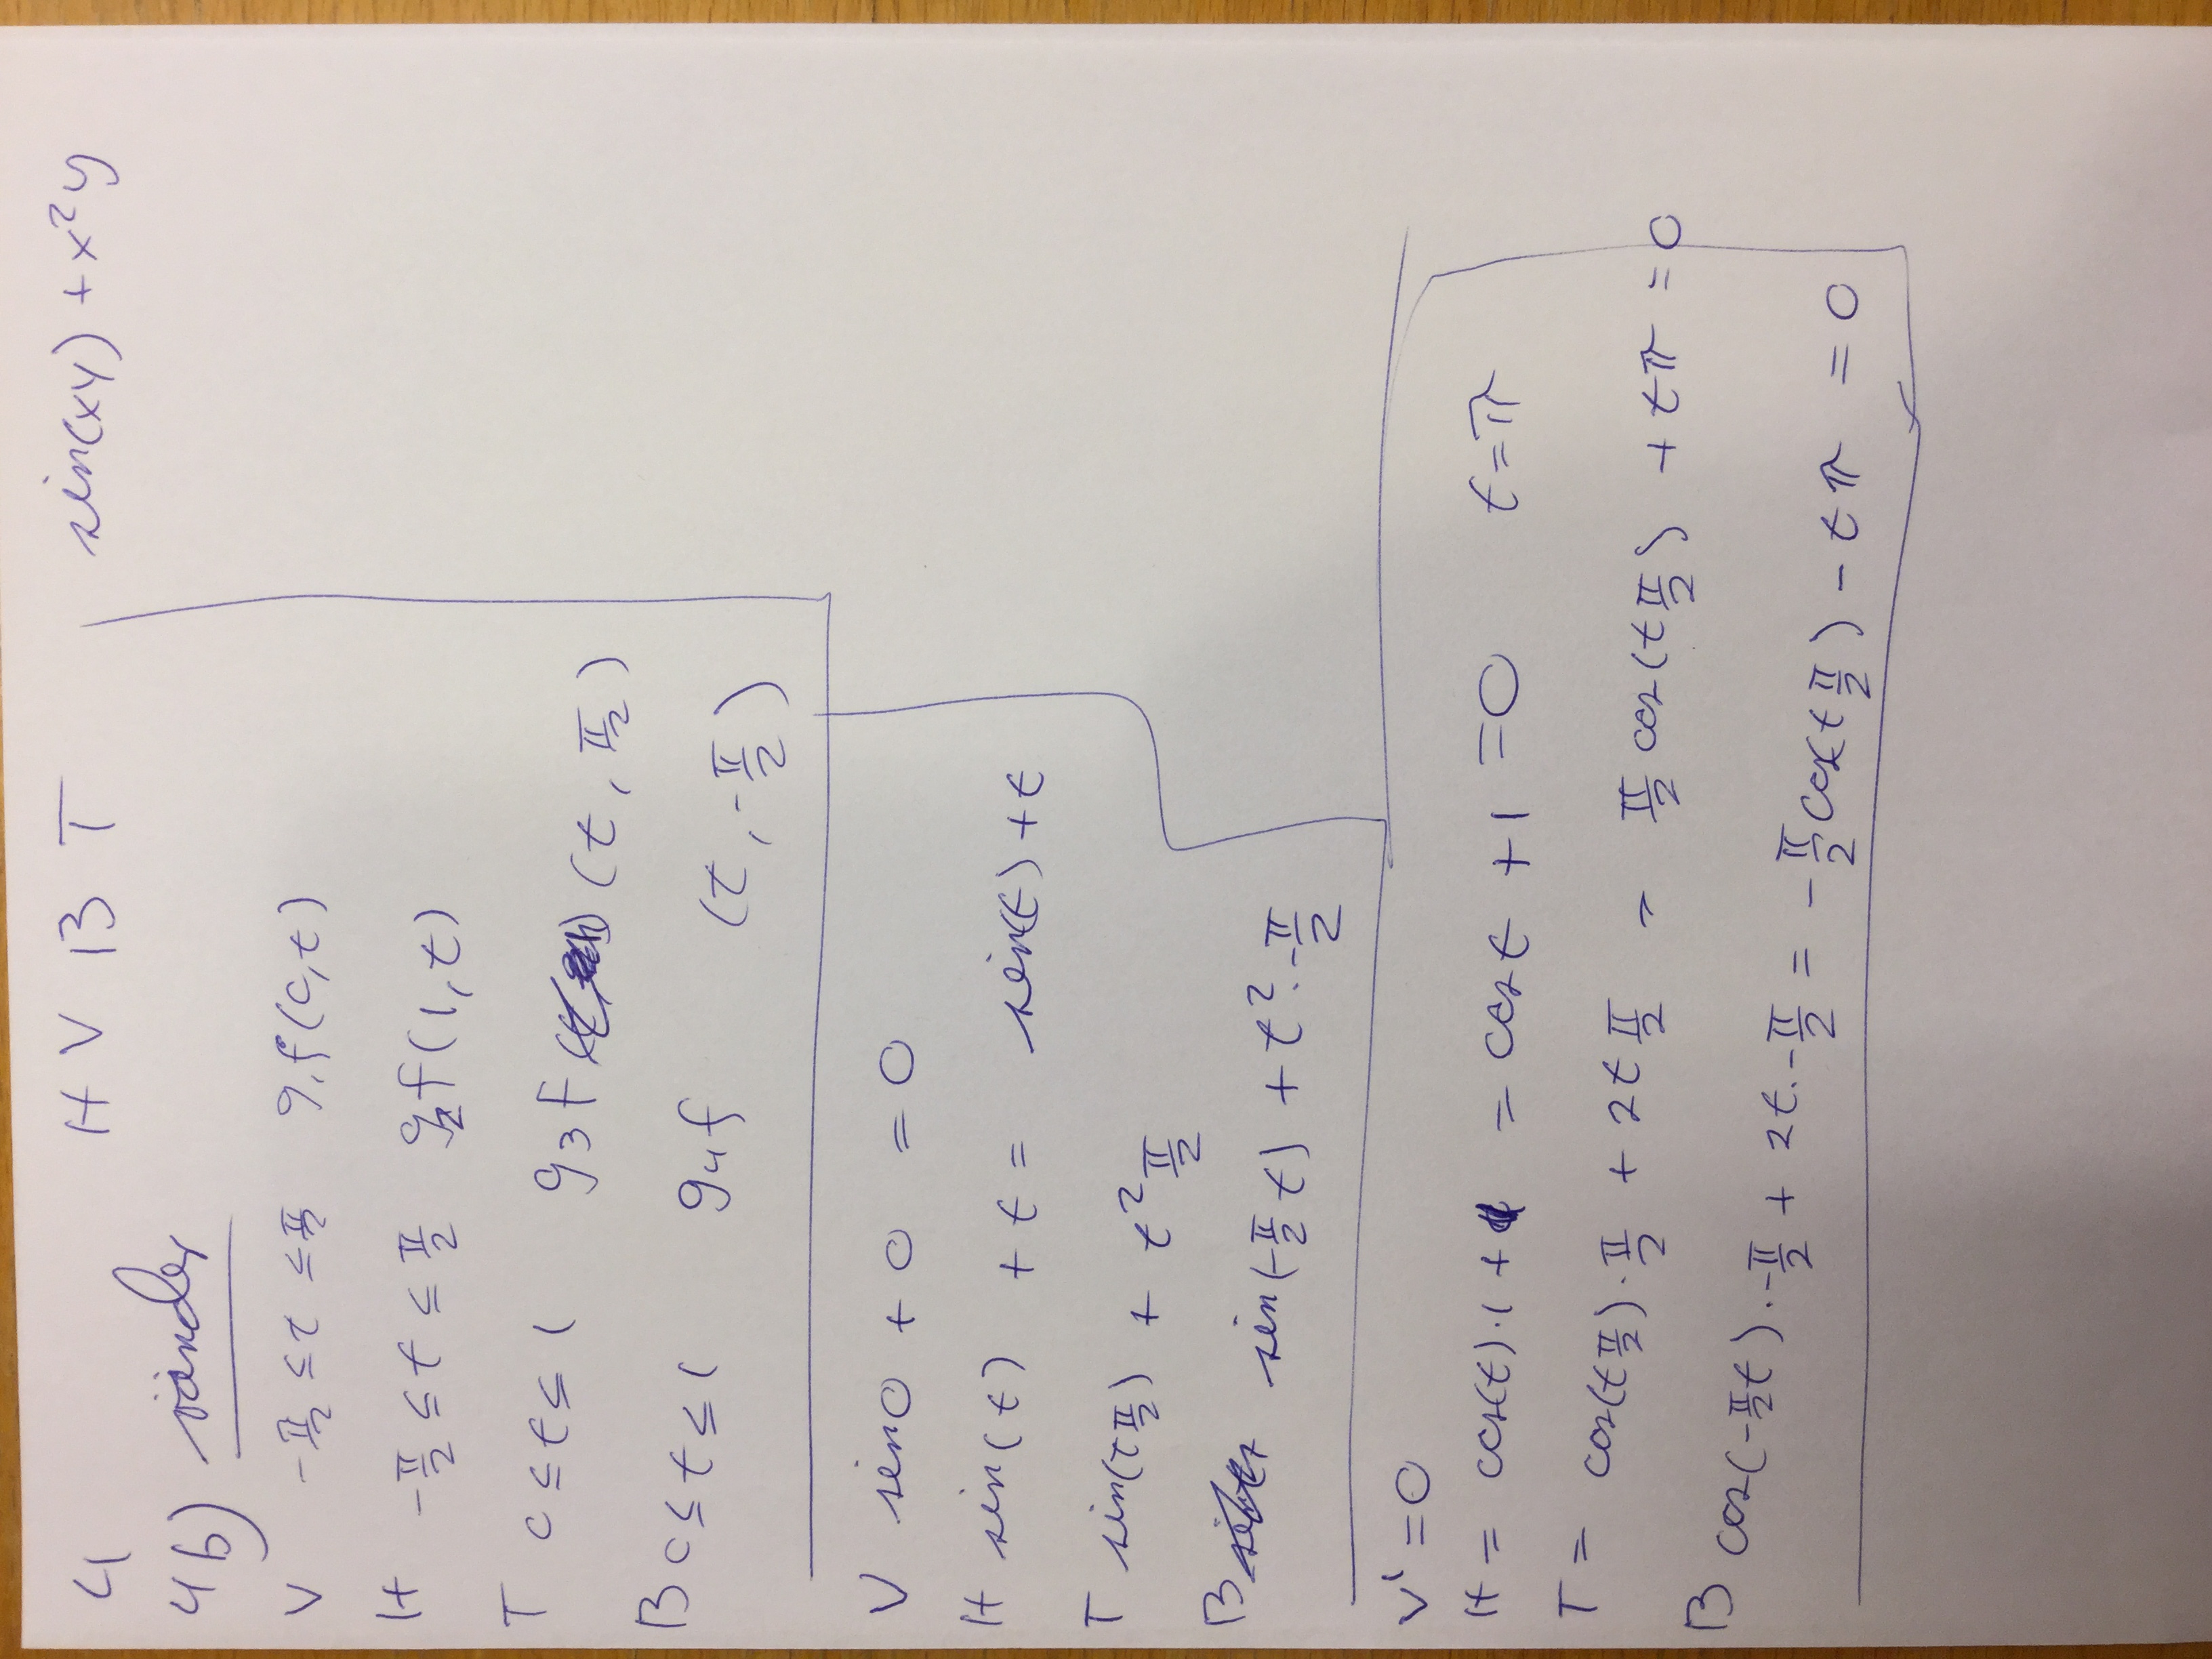 4 H V B T sin(xy) + x²y
4b) ränder
V -π/2 ≤ t ≤ π/2 g₁f(0,t)
H -π/2 ≤ t ≤ π/2 g₂f(1,t)
T 0 ≤ t ≤ 1 g₃f (t, π/2)
B 0 ≤ t ≤ 1 g₄f (t, -π/2)
V sin0 + 0 = 0
H sin(t) + t = sin(t) + t
T sin(tπ/2) + t² π/2
B sin(-π/2 t) + t² · -π/2
V' = 0
H = cos(t)·1 + 1 = cos t + 1 = 0 t = π
T = cos(tπ/2)·π/2 + 2t π/2 = π/2 cos(tπ/2) + tπ = 0
B cos(-π/2 t)· -π/2 + 2t· -π/2 = -π/2 cos(tπ/2) - tπ = 0